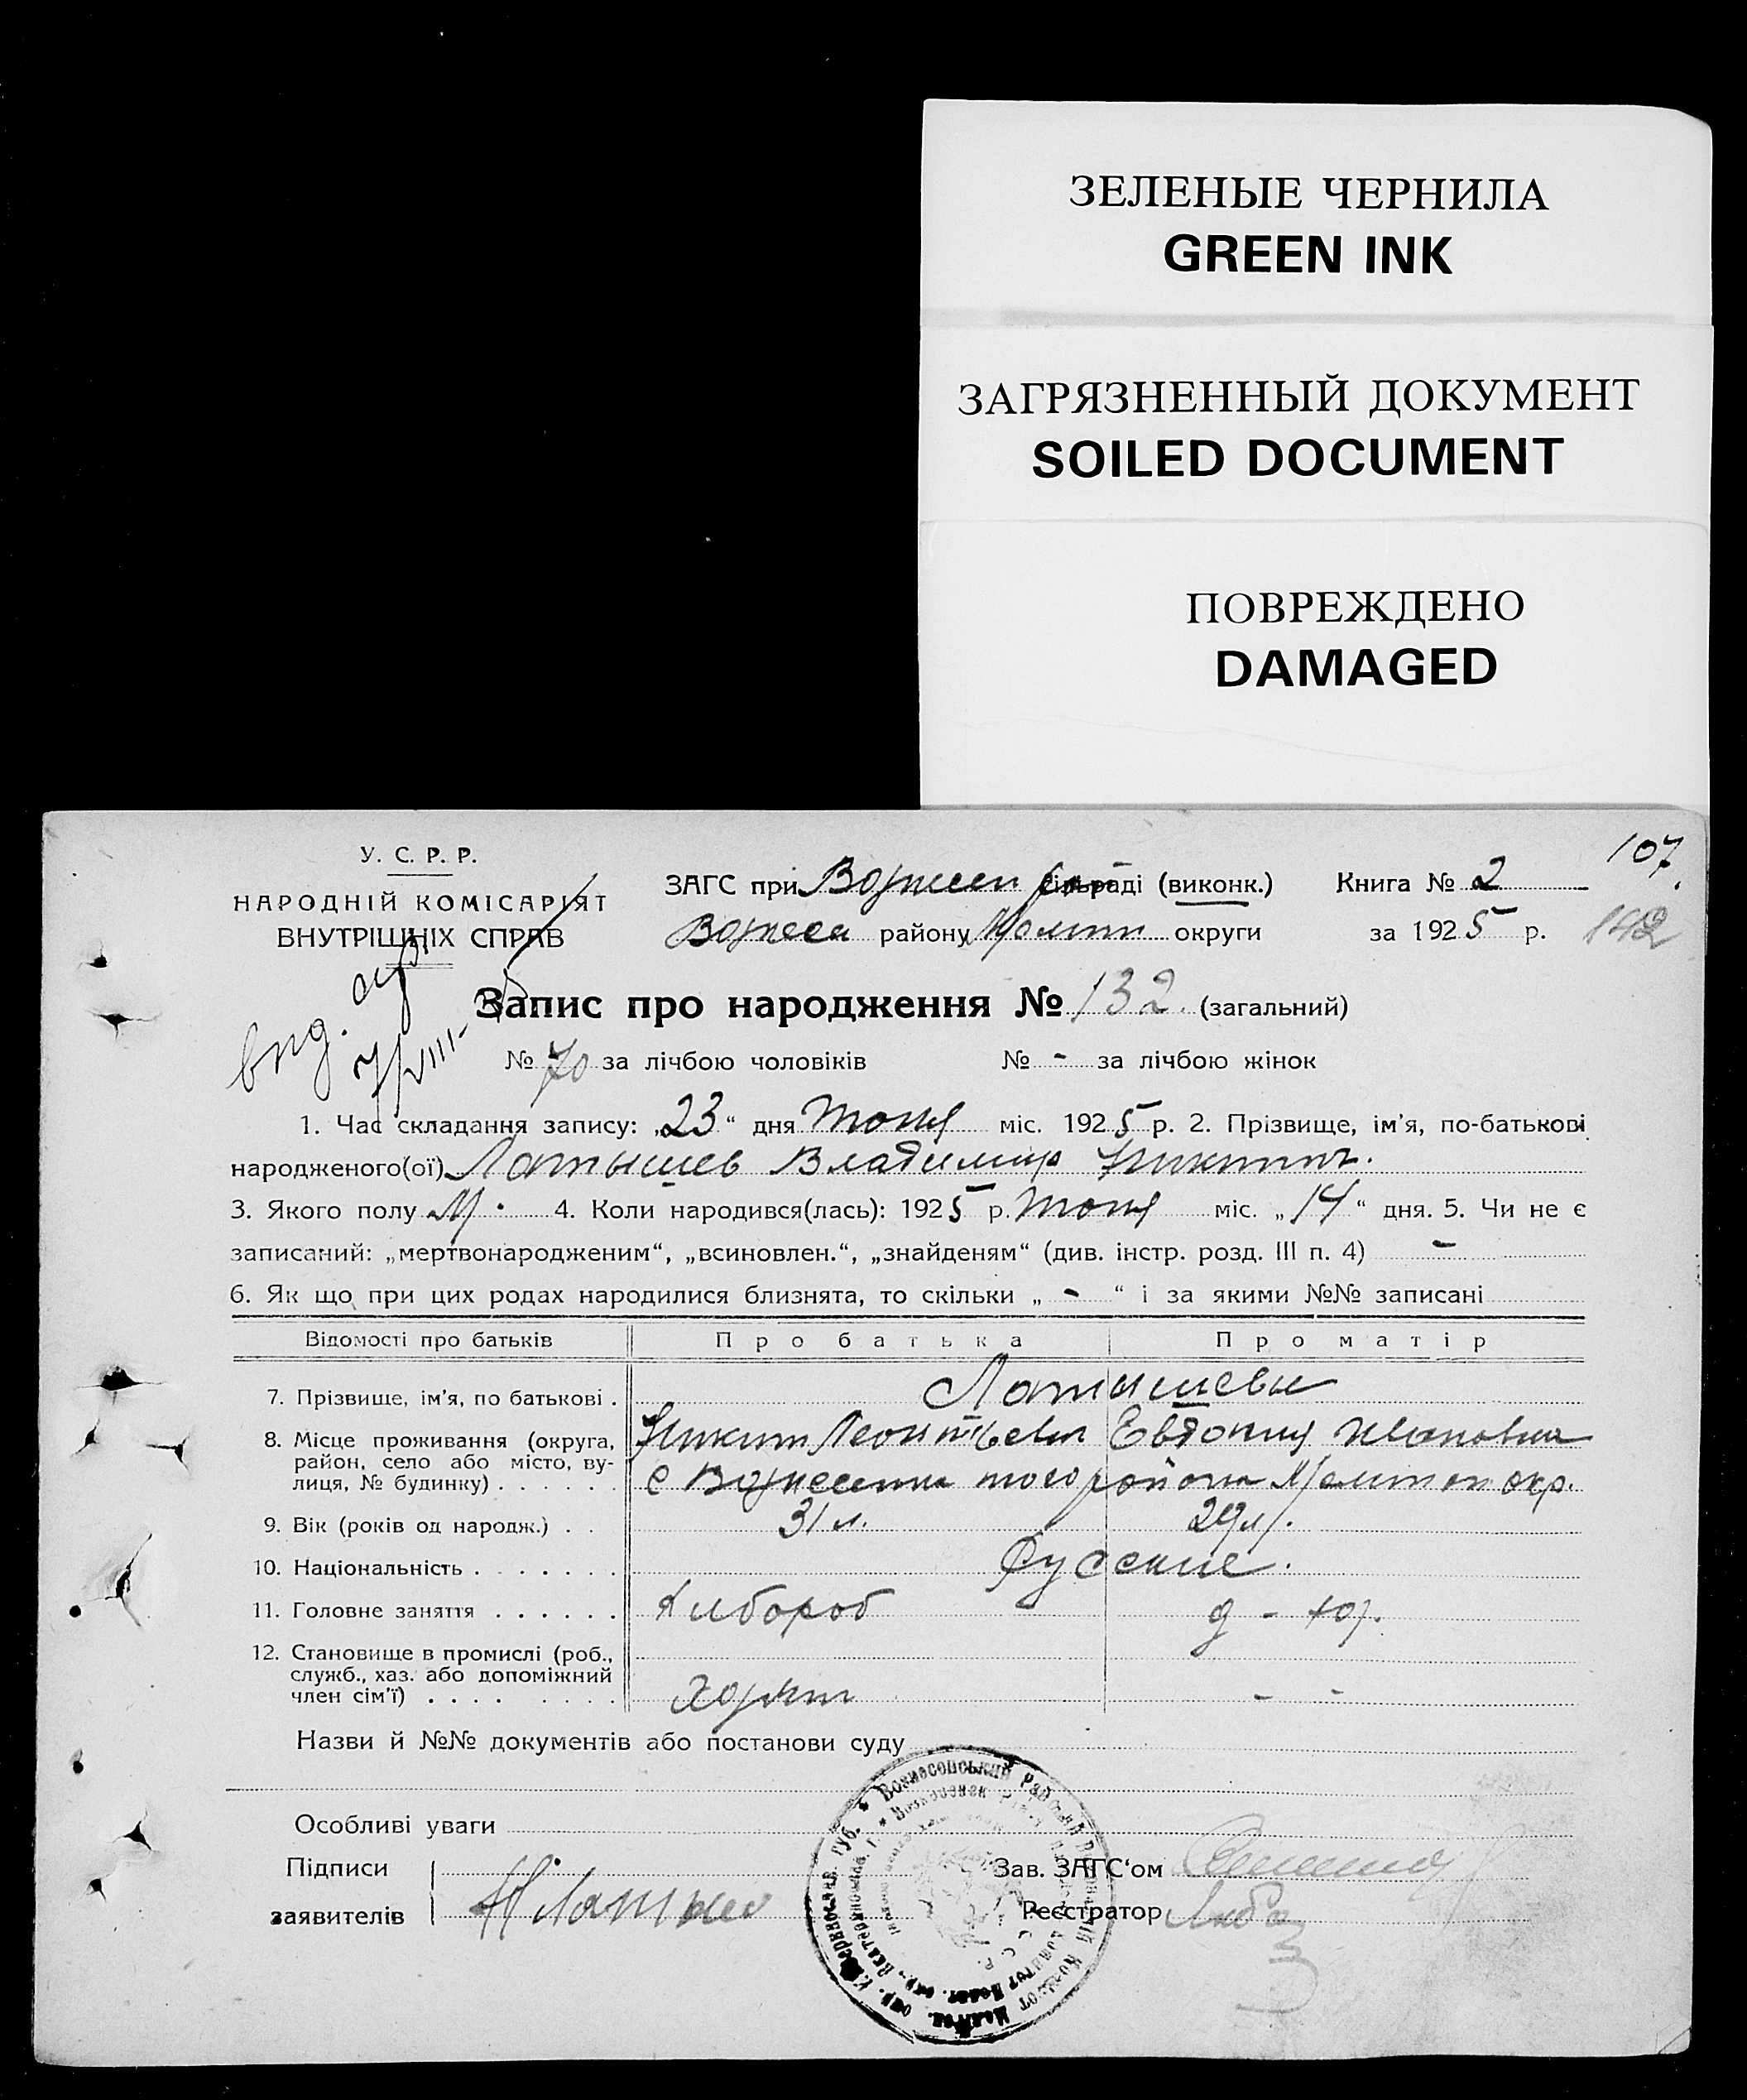 ЗЕЛЕНЫЕ ЧЕРНИЛА
GREEN INK
ЗАГРЯЗНЕННЫЙ ДОКУМЕНТ
SOILED DOCUMENT
ПОВРЕЖДЕНО
DAMAGED
107
У. С. Р. Р.
НАРОДНІЙ КОМІСАРІЯТ
ВНУТРІШНІХ СПРАВ
ЗАГС при Вознесен сільраді (виконк.) Книга № 2
Вознесен району Меліт округи за 1925 р. 142
Запис про народження № 132. (загальний)
№ 70 за лічбою чоловіків № - за лічбою жінок
1. Час складання запису: „23“ дня Июня міс. 1925 р. 2. Прізвище, ім'я, по-батькові
народженого(ої) Латышев Владимир Никитич.
3. Якого полу М. 4. Коли народився(лась): 1925 р. Июня міс. „14“ дня. 5. Чи не є
записаний: „мертвонародженим“, „всиновлен.“, „знайденям“ (див. інстр. розд. III п. 4) -
6. Як що при цих родах народилися близнята, то скільки „ - “ і за якими №№ записані
Відомості про батьків Про батька Про матір
7. Прізвище, ім'я, по батькові . Латышевы
8. Місце проживання (округа, Никит Леонтьевич Евдокия Ивановна
район, село або місто, ву-
лиця, № будинку) . . . . . . с Вознесенка того района Мелитоп окр.
9. Вік (років од народж.) . . 31 л. 29 л.
10. Національність . . . . . . . Русские.
11. Головне заняття . . . . . . Хлебороб д - хоз.
12. Становище в промислі (роб.,
служб., хаз. або допоміжний
член сім'ї) . . . . . . . . Хозяин - -
Назви й №№ документів або постанови суду
Особливі уваги
Підписи Зав. ЗАГС'ом
заявителів Н Латышев Реєстратор